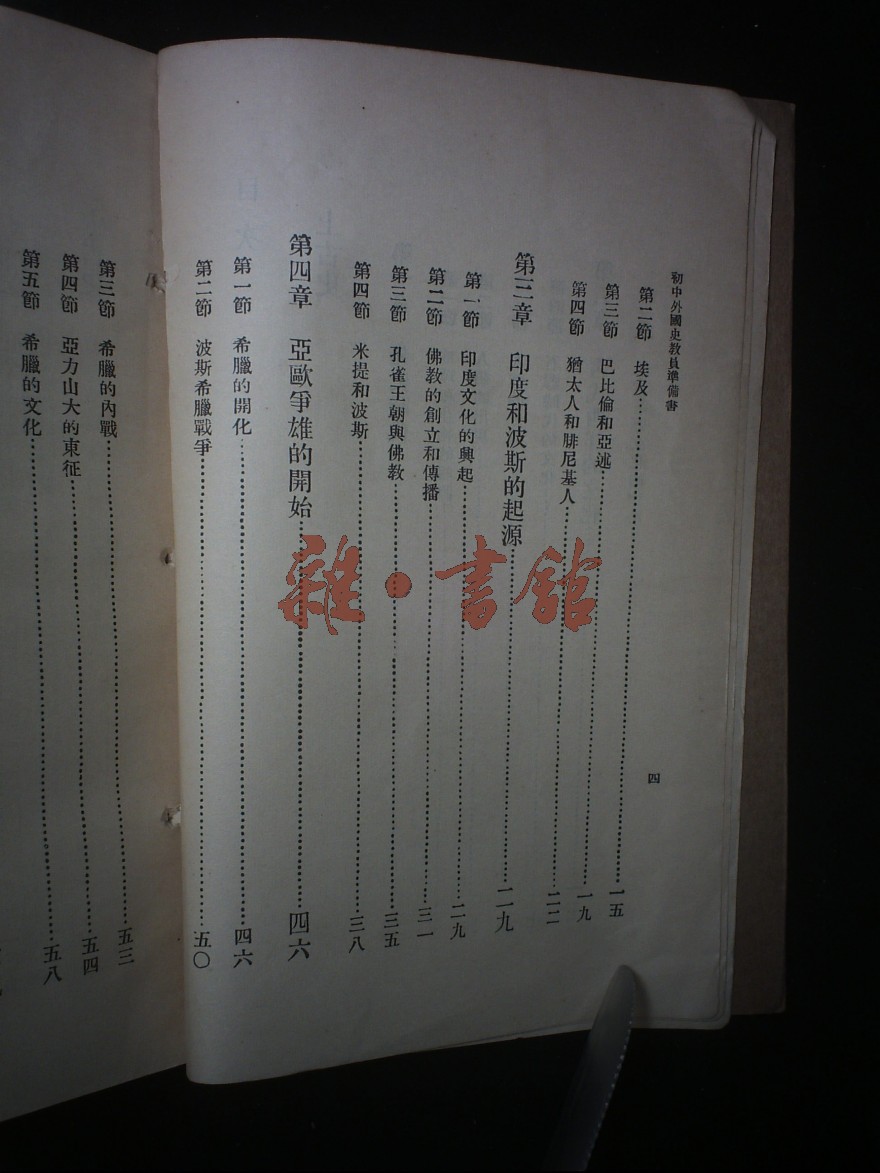 初中外國史教員準備書
四
第二節 埃及……一五
第三節 巴比倫和亞述……一九
第四節 猶太人和腓尼基人……二二
第三章 印度和波斯的起源……二九
第一節 印度文化的興起……二九
第二節 佛教的創立和傳播……三一
第三節 孔雀王朝與佛教……三五
第四節 米提和波斯……三八
第四章 亞歐爭雄的開始……四六
第一節 希臘的開化……四六
第二節 波斯希臘戰爭……五〇
第三節 希臘的內戰……五三
第四節 亞力山大的東征……五四
第五節 希臘的文化……五八
雜·書館